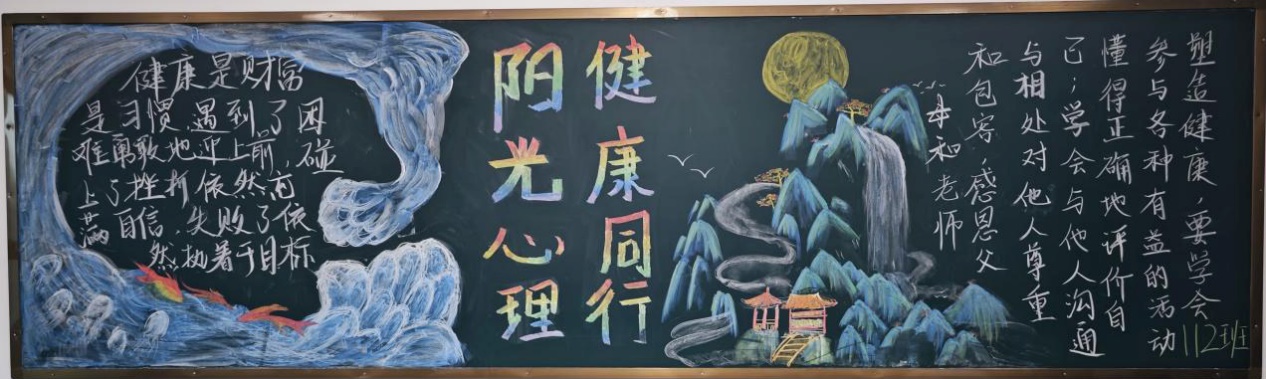 健康是财富
是习惯,遇到了困
难勇敢地迎上前,碰
上了挫折依然充
满自信,失败了依
然执着于目标
健康同行
阳光心理
塑造健康,要学会
参与各种有益的活动
懂得正确地评价自
己;学会与他人沟通
与相处对他人尊重
和包容,感恩父
母和老师
112班